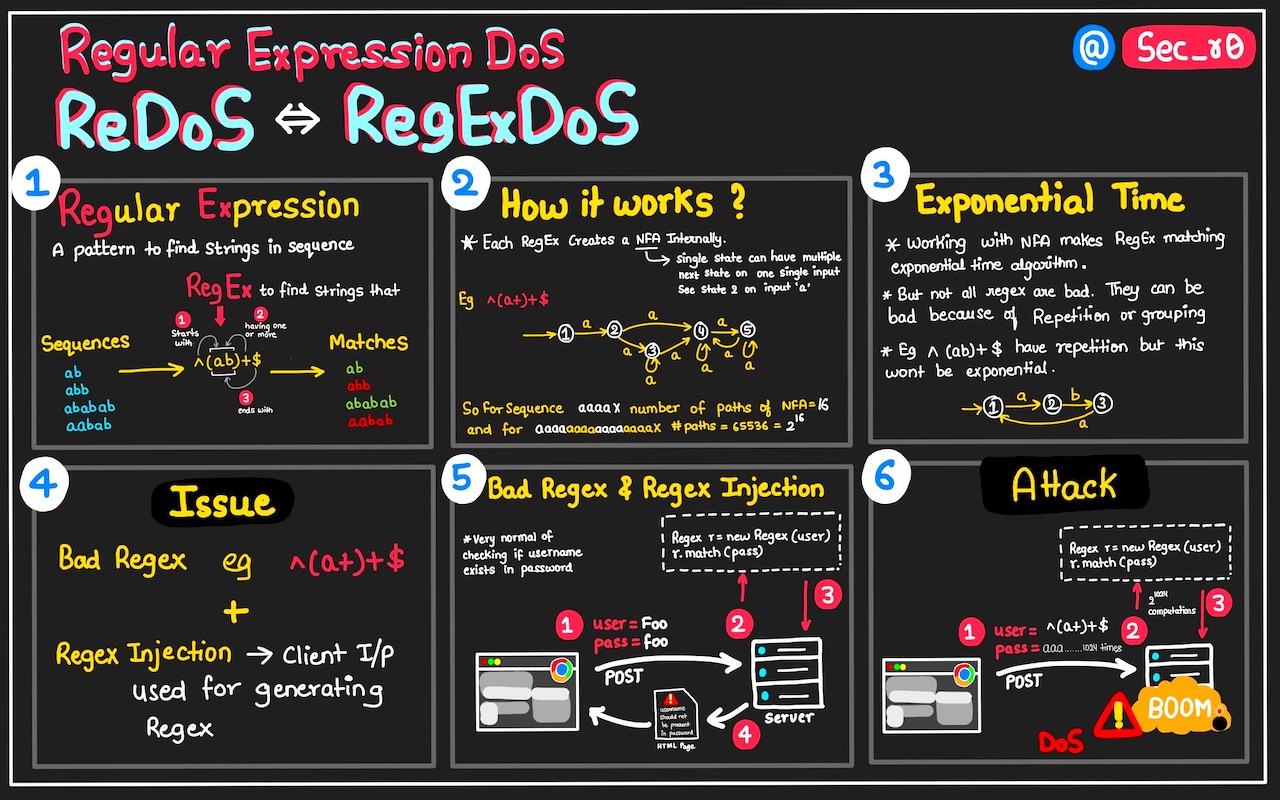 Regular Expression DoS
ReDoS ⇔ RegExDoS
@ Sec_r0
1
Regular Expression
A pattern to find Strings in sequence
RegEx to find Strings that
1
Starts with
2
having one or more
Sequences
ab
abb
ababab
aabab
^(ab)+$
3
ends with
Matches
ab
abb
ababab
aabab
2
How it works ?
* Each RegEx Creates a NFA Internally.
single state can have multiple
next state on one single input
See State 2 on input 'a'
Eg ^(a+)+$
1 a 2 a 4 a 5
a 3 a a a
a a
So for Sequence aaaax number of paths of NFA=16
and for aaaaaaaaaaaaaaaax #paths = 65536 = 2^16
3
Exponential Time
* Working with NFA makes RegEx matching
exponential time algorithm.
* But not all regex are bad. They can be
bad because of Repetition or grouping
* Eg ^(ab)+$ have repetition but this
wont be exponential.
1 a 2 b 3
a
4
Issue
Bad Regex eg ^(a+)+$
+
Regex Injection → Client I/P
used for generating
Regex
5
Bad Regex & Regex Injection
*Very normal of
checking if username
exists in password
Regex r = new Regex (user)
r.match (pass)
1
user = Foo
pass = foo
POST
2
3
Server
4
username
should not
be present
in password
HTML Page
6
Attack
Regex r = new Regex (user)
r.match (pass)
1
user = ^(a+)+$
pass = aaa.......1024 times
POST
2
2^1024
computations
3
BOOM
DoS